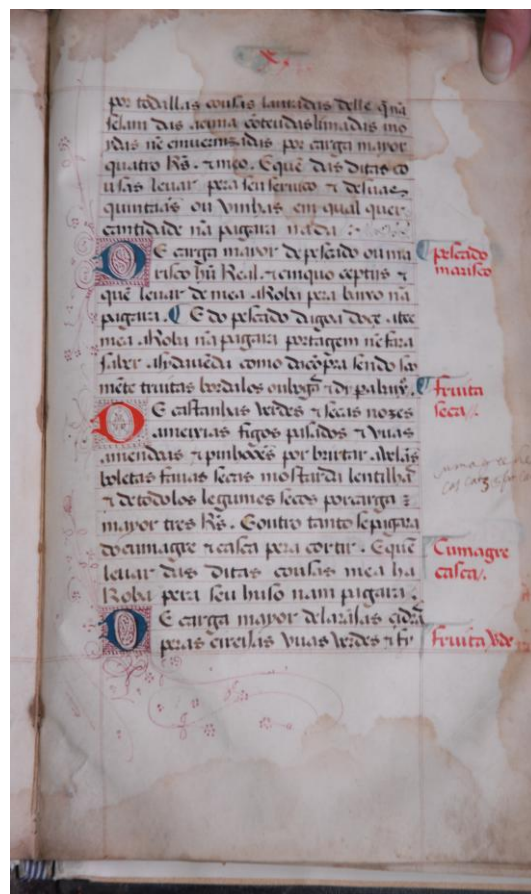 por todallas cousas lauradas delle q̃ nã
seiam das acima cõteudas limadas mo
idas nẽ enuernizadas por carga mayor
quatro Rs̃. ⁊ meo. E quẽ das ditas co
usas leuar pera seu seruiço ⁊ de suas
quintaãs ou vinhas em qual quer
cantidade nã pagara nada :
DE carga mayor de pescado ou ma
risco hũ Real. ⁊ cinquo ceptis ⁊
quẽ leuar de mea aRoba pera baixo nã
pagara. ¶ E do pescado dagoa doçe atee
mea aRoba nã pagara portagem nẽ fara
saber. Asy da vẽda como da cõpra sendo soo
mẽte truitas bordalos
¶ pescado
marisco
DE castanhas verdes ⁊ secas nozes
ameixias figos pasados ⁊ vuas
amendoas ⁊ pinhoões por britar avelãs
boletas fauas secas mostarda lentilhas
⁊ de todolos legumes secos por carga
mayor tres Rs̃. E outro tanto se pagara
do cumagre ⁊ casca pera cortir. E quẽ
leuar das ditas cousas mea ha
Roba pera seu huso nam pagara.
¶ fruita
seca/.
Cumagre
casca/.
DE carga mayor de larãjas cidrã
peras cireijas vuas verdes ⁊ fi
fruita vde